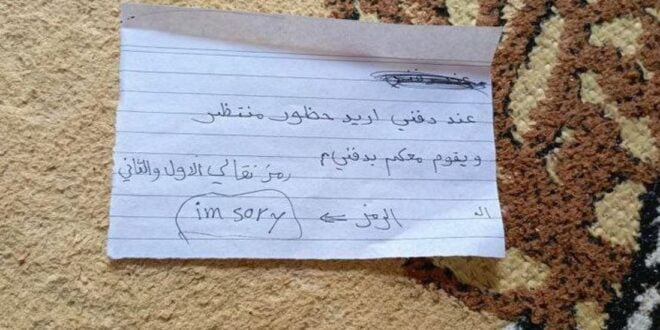 عند دفني اريد حظور منتظر
ويقوم معكم بدفني
رمز نقالي الاول والثاني
الـ الرمز ⇐ im sory